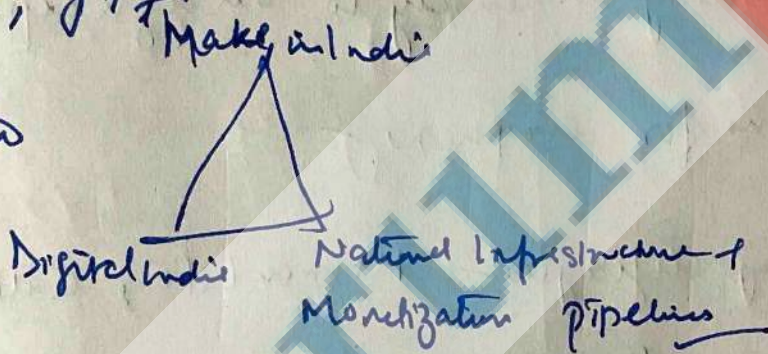 Make in India
Digital India
National Infrastructure &
Monetization pipelines
rum